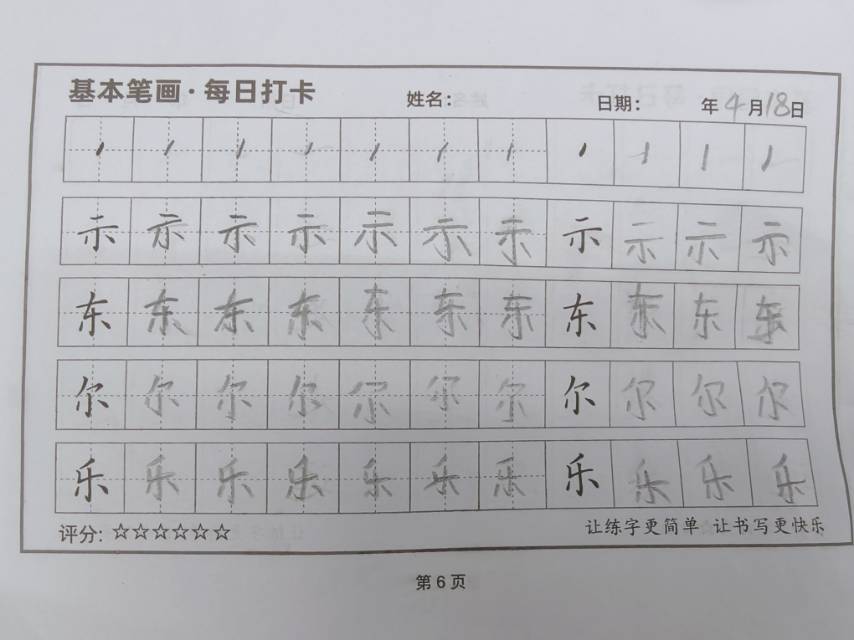 基本笔画·每日打卡 姓名： 日期： 年4月18日
示示示示示示示示示示示
东东东东东东东东东东东
尔尔尔尔尔尔尔尔尔尔尔
乐乐乐乐乐乐乐乐乐乐乐
评分：☆☆☆☆☆☆ 让练字更简单 让书写更快乐
第6页